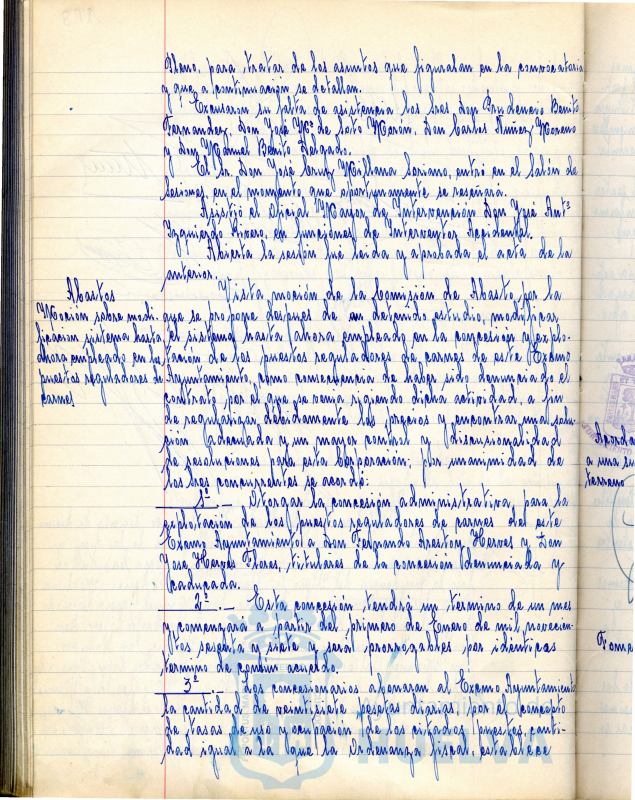 Pleno, para tratar de los asuntos que figuraban en la convocatoria
y que a continuación se detallan.
Excusaron su falta de asistencia los Sres Don Prudencio Benito
Fernandez, Don José Mª de Soto Morón, Don Carlos Núñez Moreno
y Don Manuel Benito Delgado.
El Sr. Don José Cruz Millana Soriano, entró en el Salón de
Sesiones, en el momento que oportunamente se reseñará.
Asistió el Oficial Mayor de Intervención Don José Antº
Izquierdo Rivero, en funciones de Interventor Accidental.
Abierta la sesión fué leida y aprobada el acta de la
anterior.
Abastos
Moción sobre modi-
ficacion sistema hasta
ahora empleado en los
puestos reguladores de
carnes
Vista moción de la Comisión de Abasto, por la
que se propone después de un detenido estudio, modificar
el sistema hasta ahora empleado en la concesión y explo-
tación de los puestos reguladores de carnes de este Excmo
Ayuntamiento, como consecuencia de haber sido denunciado el
contrato por el que se venia rigiendo dicha actividad, a fin
de regularizar debidamente los precios y encontrar una solu-
ción adecuada y un mayor control y discrecionalidad
de resoluciones para esta Corporación; por unanimidad de
los Sres concurrentes se acordo:
1º.- Otorgar la concesión administrativa, para la
explotación de los puestos reguladores de carnes del este
Excmo Ayuntamiento a Don Fernando Herves y Don
Jose Herves Flores, titulares de la concesión denunciada y
caducada.
2º.- Esta concesión tendrá un término de un mes
y comenzará a partir del primero de Enero de mil novecien-
tos sesenta y siete y será prorrogables por identicas
termino de comun acuerdo.
3º.- Los concesionarios abonaran al Excmo Ayuntamiento
la cantidad de veintisiete pesetas diarias, por el concepto
de tasas de uso y ocupación de los citados puestos, canti-
dad igual a la que la Ordenanza fiscal, establece
Acorda
a una su
terreno
Toma
HUELVA